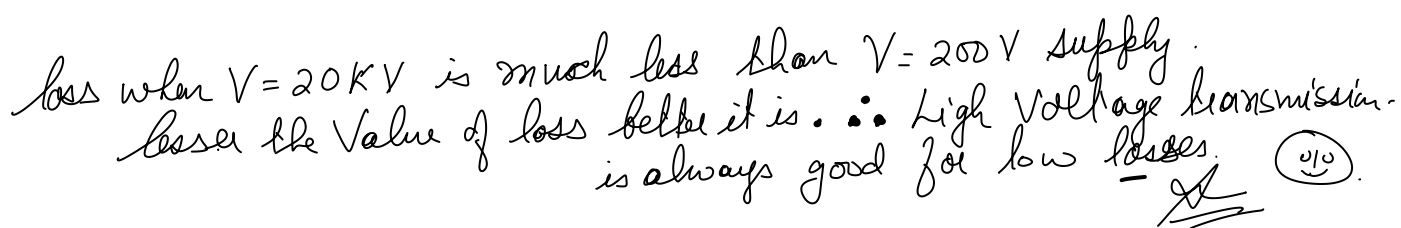 loss when V = 20KV is much less than V = 200V supply.
lesser the Value of loss better it is. ∴ High Voltage transmission.
is always good for low losses.